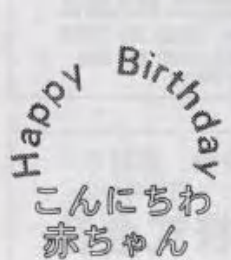 Happy Birthday
こんにちわ
赤ちゃん